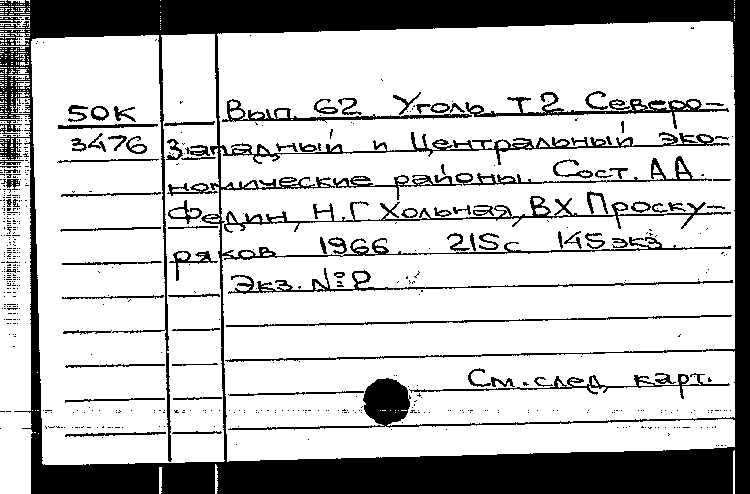 50К Вып. 62 Уголь. Т2. Северо-
3476 Западный и Центральный эко-
номические районы. Сост. А.А.
Федин, Н.Г Хольная, В.Х. Проску-
ряков 1966. 215с 145экз.
Экз. №2
См. след. карт.